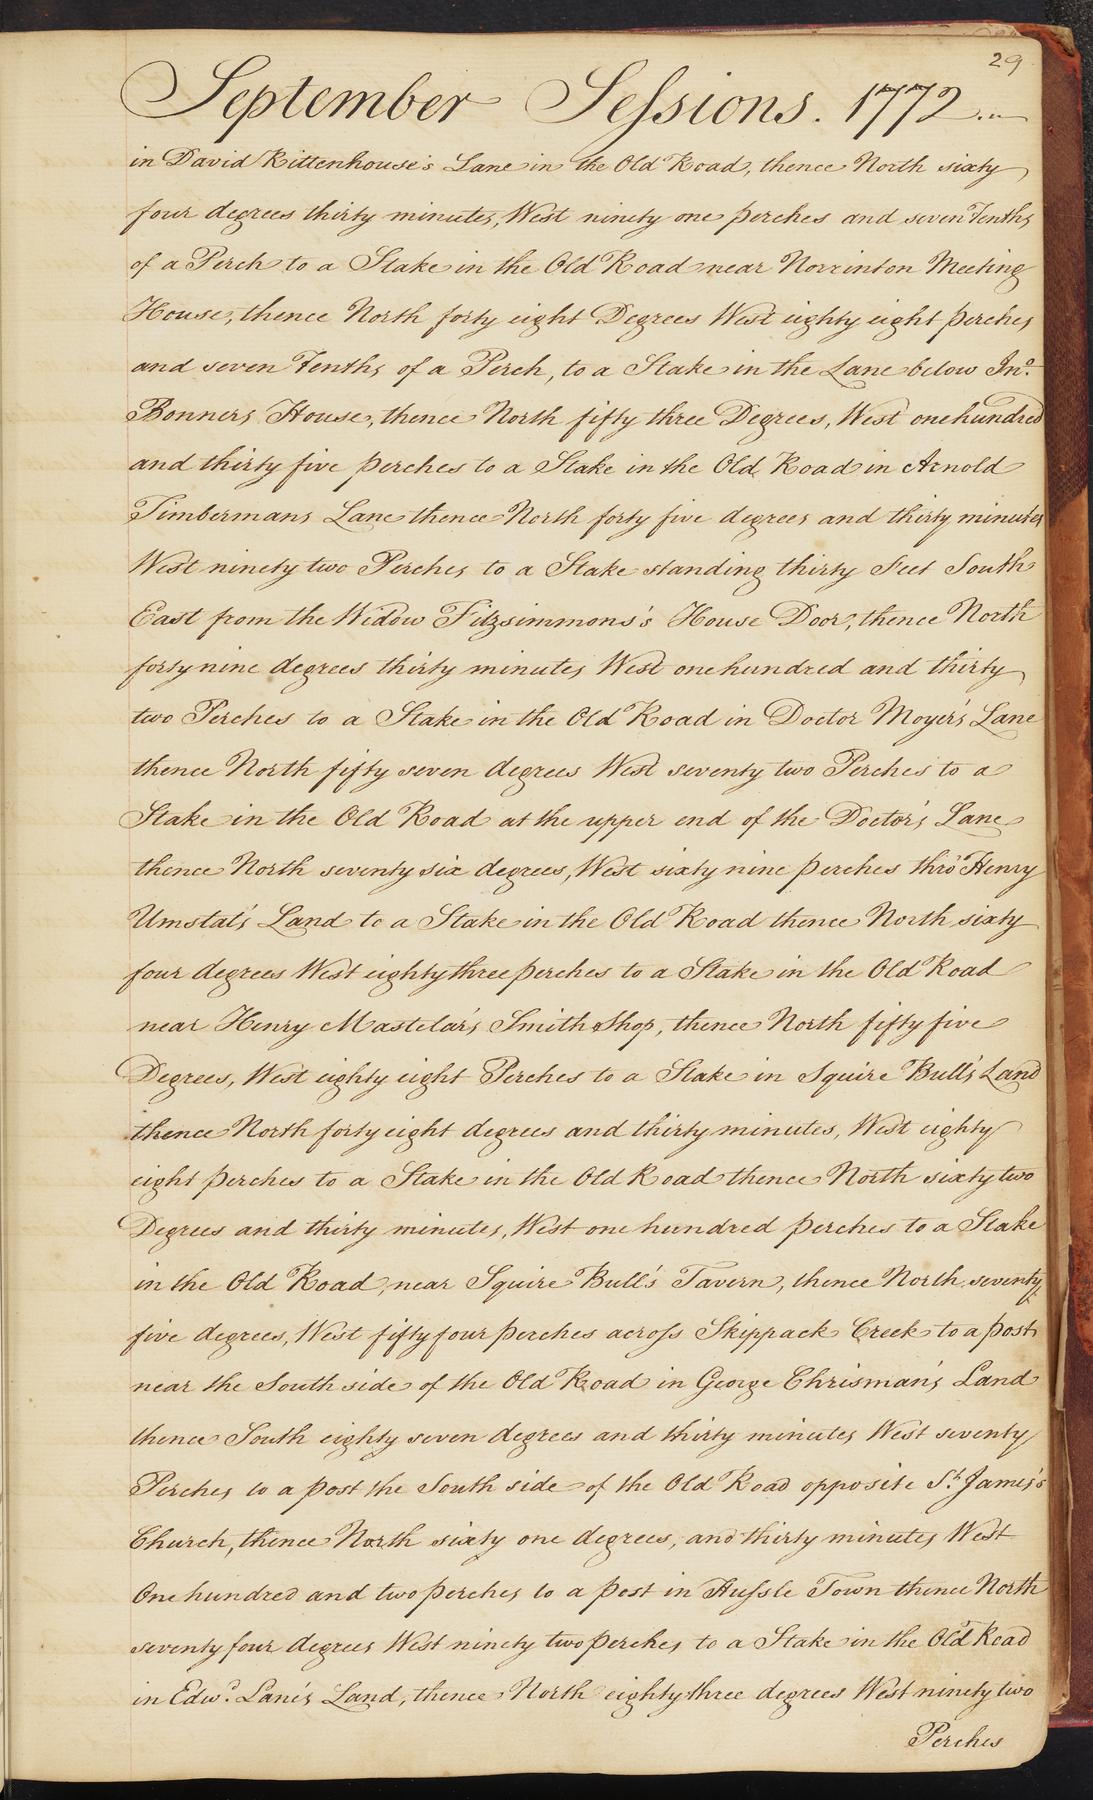 29
September Sessions. 1772.
in David Rittenhouse's Lane in the Old Road, thence North sixty
four degrees thirty minutes, West ninety one perches and seven Tenths
of a Perch to a Stake in the Old Road near Norrinton Meeting
House, thence North forty eight Degrees West eighty eight perches
and seven Tenths of a Perch, to a Stake in the Lane below Jno.
Bonners House, thence North fifty three Degrees, West one hundred
and thirty five perches to a Stake in the Old Road in Arnold
Timbermans Lane thence North forty five degrees and thirty minutes
West ninety two Perches to a Stake standing thirty Feet South
East from the Widow Fitzsimmons's House Door, thence North
forty nine degrees thirty minutes West one hundred and thirty
two Perches to a Stake in the Old Road in Doctor Moyer's Lane
thence North fifty seven degrees West seventy two Perches to a
Stake in the Old Road at the upper end of the Doctor's Lane
thence North seventy six degrees, West sixty nine perches thro' Henry
Umstat's Land to a Stake in the Old Road thence North sixty
four degrees West eighty three perches to a Stake in the Old Road
near Henry Mastelar's Smith Shop, thence North fifty five
Degrees, West eighty eight Perches to a Stake in Squire Bull's Land
thence North forty eight degrees and thirty minutes, West eighty
eight perches to a Stake in the Old Road thence North sixty two
Degrees and thirty minutes, West one hundred perches to a Stake
in the Old Road, near Squire Bull's Tavern, thence North seventy
five degrees, West fifty four perches across Skippack Creek to a post
near the South side of the Old Road in George Chrisman's Land
thence South eighty seven degrees and thirty minutes West seventy
Perches to a post the South side of the Old Road opposite St. James's
Church, thence North sixty one degrees, and thirty minutes West
One hundred and two perches to a post in Hussle Town thence North
seventy four degrees West ninety two perches to a Stake in the Old Road
in Edwd. Lane's Land, thence North eighty three degrees West ninety two
Perches